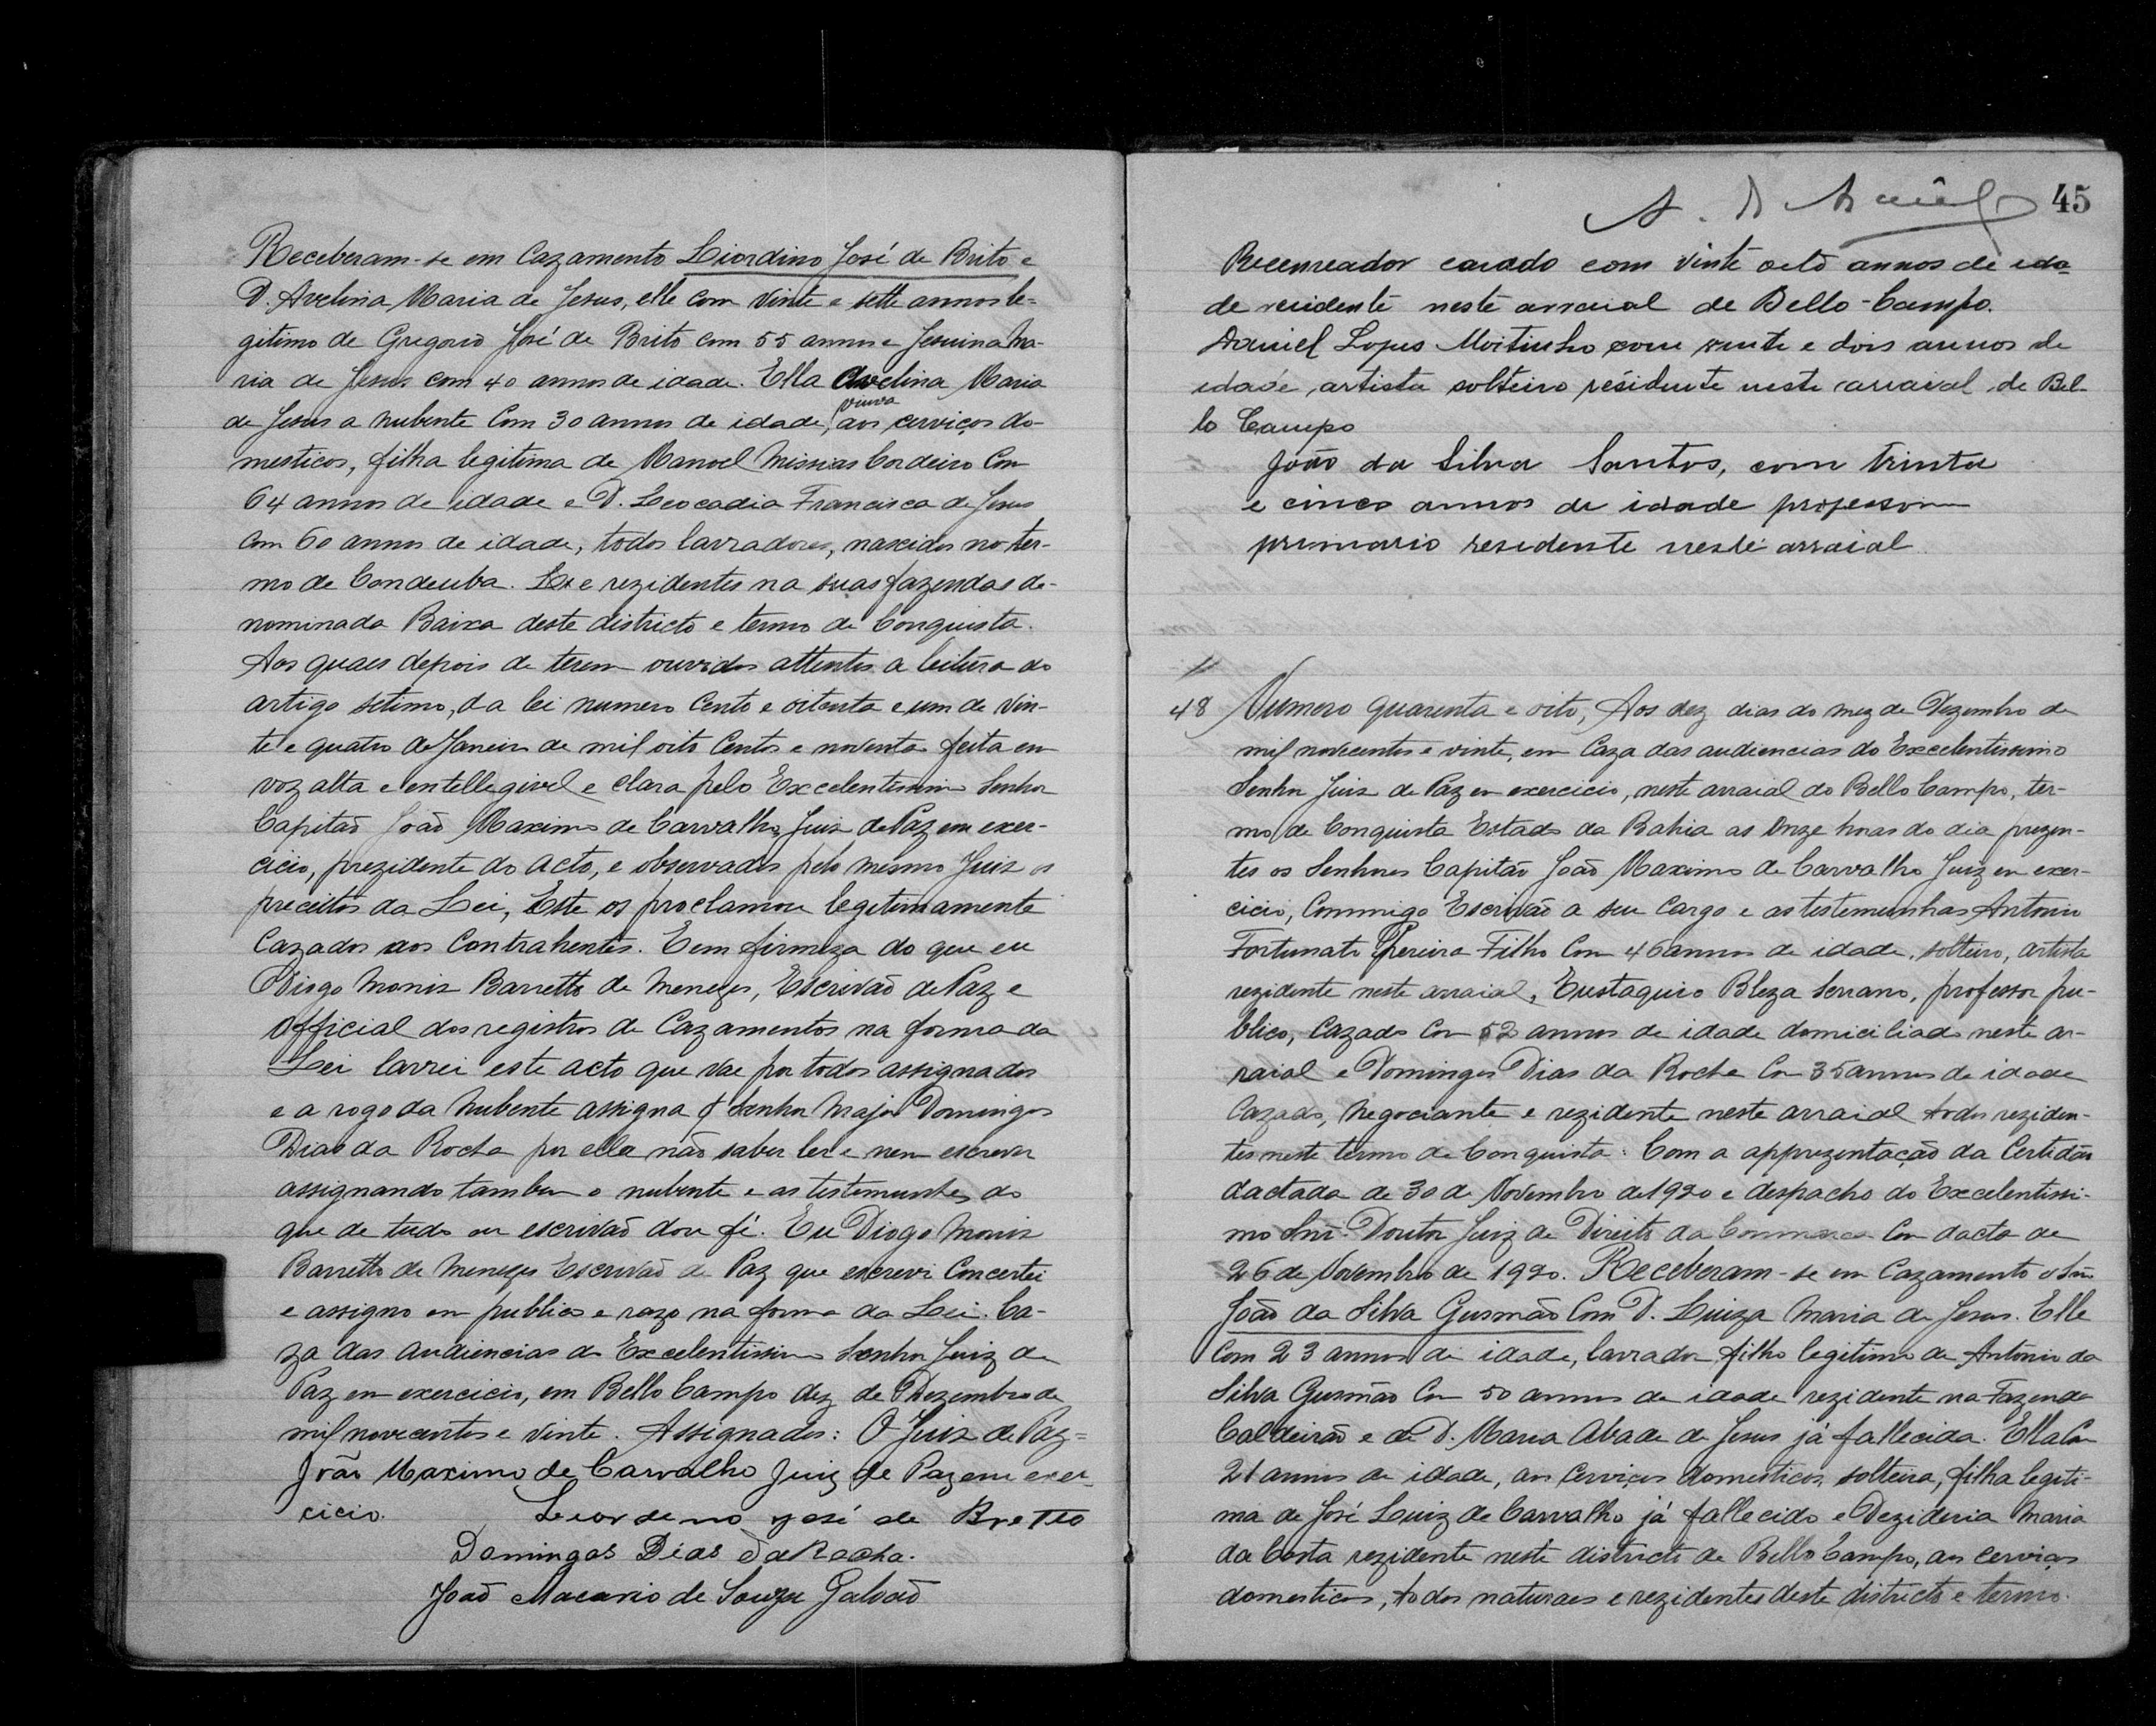 Receberam-se em Cazamento Liordino José de Brito e
D. Avelina Maria de Jesus, elle com vinte e sette annos le-
gitimo de Gregorio José de Brito com 55 annos e Jesuina Ma-
ria de Jesus com 40 annos de idade. Ella Avelina Maria
de Jesus a nubente Com 30 annos de idade, viuva aos cerviços do-
mesticos, filha legitima de Manoel Missias Cordeiro Com
64 annos de idade e D. Leocadia Francisca de Jesus
Com 60 annos de idade, todos lavradores, nascidos no ter-
mo de Condeuba. e rezidentes na suas fazendas de-
nominada Baixa deste districto e termo de Conquista.
Aos quaes depois de terem ouvidos attentos a leitura do
artigo setimo, da lei numero Cento e oitenta e um de vin-
te e quatro de Janeiro de mil oito Centos e noventa feita em
voz alta e entellegivel e clara pelo Excelentissimo Senhor
Capitão João Maximo de Carvalho, Juiz de Paz em exer-
cicio, prezidente do acto, e observados pelo mesmo Juiz os
preceitos da Lei, Este os proclamou legitimamente
Cazados aos Contrahentes. E em firmeza do que eu
Diogo Moniz Barretto de Menezes, Escrivão de Paz e
Official dos registros de Cazamentos na forma da
Lei lavrei este acto que vae por todos assignados
e a rogo da Nubente assigna o Senhor Major Domingos
Dias da Rocha por ella não saber ler e nem escrever
assignando tambem o nubente e as testemunhas do
que de tudo eu escrivão dou fé. Eu Diogo Moniz
Barretto de Menezes Escrivão de Paz que escrevi Concertei
e assigno em publico e razo na forma da Lei. Ca-
za das audiencias do Excelentissimo Senhor Juiz de
Paz em exercicio, em Bello Campo dez de Dezembro de
mil novecentos e vinte. Assignados: O Juiz de Paz=
João Maximo de Carvalho Juiz de Paz em exer-
cicio. Leordeno José de Bretto
Domingos Dias da Rocha.
João Macario de Souza Galvão
45
Recenseador casado com vinte oito annos de ida
de residente neste arraial de Bello-Campo.
Daniel Lopes Moitinho com vinte e dois annos de
idade artista solteiro residente neste arraial de Bel-
lo Campo
João da Silva Santos, com trinta
e cinco annos de idade professor
primario residente neste arraial
48 Numero quarenta e oito, Aos dez dias do mez de Dezembro de
mil novecentos e vinte, em Caza das audiencias do Excelentissimo
Senhor Juiz de Paz em exercicio, neste arraial do Bello Campo, ter-
mo de Conquista Estado da Bahia as onze horas do dia prezen-
tes os Senhores Capitão João Maximo de Carvalho Juiz em exer-
cicio, Commigo Escrivão a seu Cargo e as testemunhas Antonio
Fortunato Pereira Filho Com 46 annos de idade, solteiro, artista
rezidente neste arraial, Eustaquio Bleza Serrano, professor pu-
blico, Cazado Com 52 annos de idade domiciliado neste ar-
raial e Domingos Dias da Rocha Com 35 annos de idade
Cazado, Negociante e rezidente neste arraial todos reziden-
tes neste termo de Conquista. Com a apprezentação da Certidão
dactada de 30 de Novembro de 1920 e despacho do Excelentissi-
mo Snr. Doutor Juiz de Direito da Commarca Com dacta de
26 de Novembro de 1920. Receberam-se em Cazamento o Snr.
João da Silva Gusmão Com D. Luiza Maria de Jesus. Elle
Com 23 annos de idade, lavrador filho legitimo de Antonio da
Silva Gusmão Com 50 annos de idade rezidente na Fazenda
Caldeirão e de D. Maria Abade de Jesus já fallecida. Ella Com
21 annos de idade, aos Cerviços domesticos, solteira, filha legiti-
ma de José Luiz de Carvalho já fallecido e Dezideria Maria
da Costa rezidente neste districto de Bello Campo, aos cerviços
domesticos, todos naturaes e rezidentes deste districto e termo.